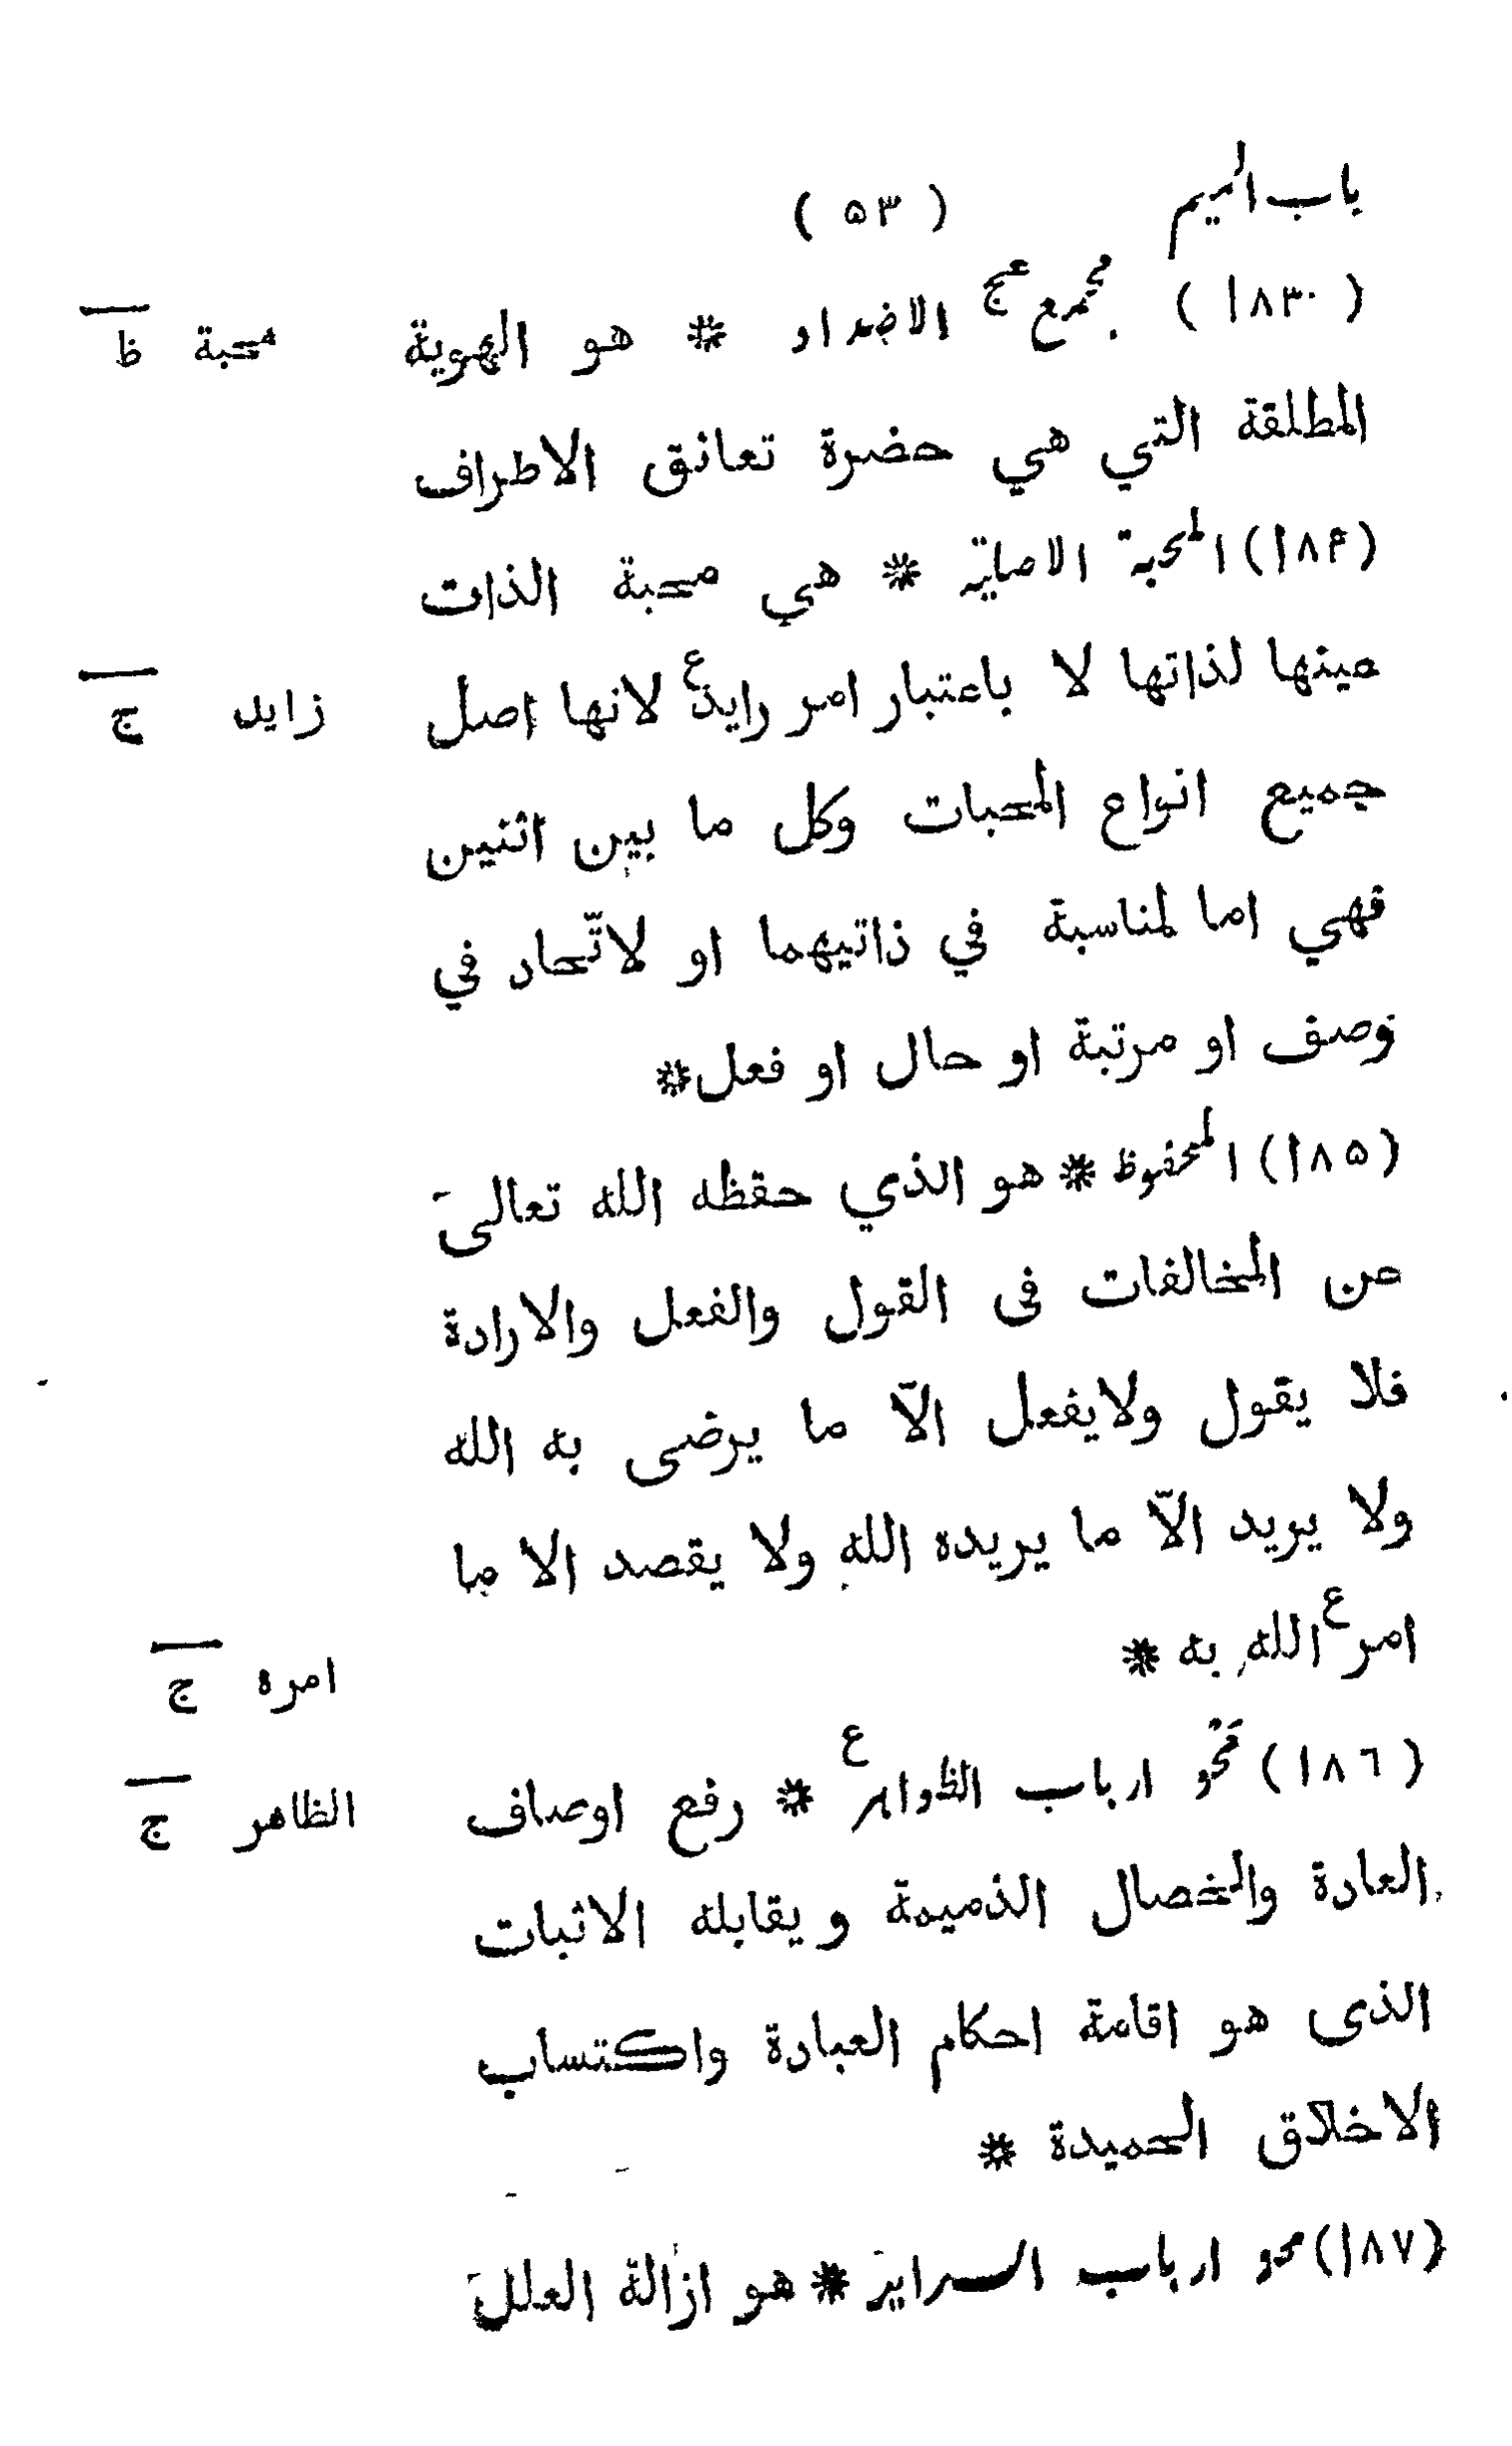 باب الميم ( ۵۳ )
( ۱۸۳ ) مجمع الاضداد * هو الهوية محبة ظ
المطلقة التي هي حضرة تعانق الاطراف
(۱۸۴) المحبة الاصلية * هي محبة الذات
عينها لذاتها لا باعتبار امر رايد ع لانها اصل زايد ج
جميع انواع المحبات وكل ما بين اثنين
فهي اما لمناسبة في ذاتيهما او لاتّحاد في
وصف او مرتبة او حال او فعل *
(۱۸۵) المحفوظ * هو الذي حفظه الله تعالى
من المخالفات فى القول والفعل والارادة
فلا يقول ولايفعل الاّ ما يرضى به الله
ولا يريد الاّ ما يريده الله ولا يقصد الا ما
امر ع الله به * امره ج
(۱۸٦) مَحْو ارباب الظواهر ع * رفع اوصاف الظاهر ج
العادة والخصال الذميمة ويقابله الاثبات
الذى هو اقامة احكام العبادة واكتساب
الاخلاق الحميدة *
(۱۸۷) محو ارباب السراير * هو ازالة العلل